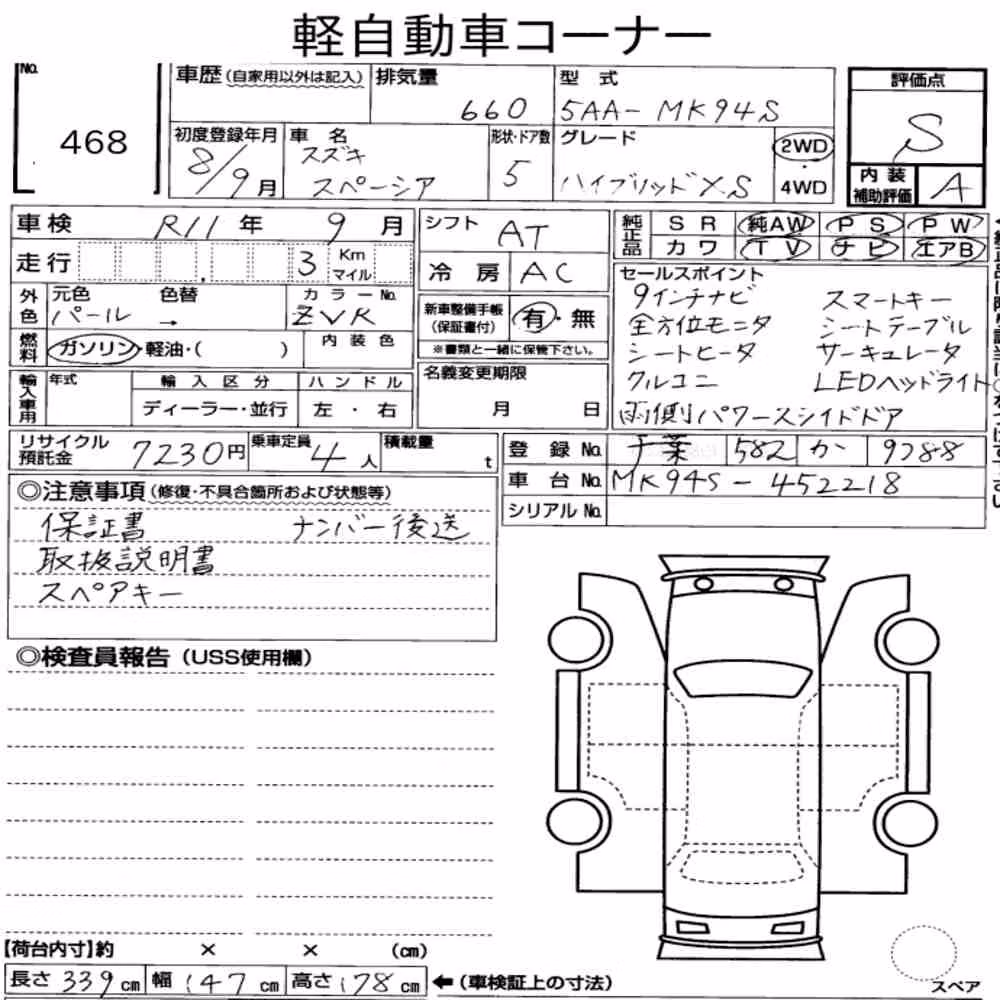 軽自動車コーナー
No.
468
車歴(自家用以外は記入) 排気量 型式 評価点
660 5AA-MK94S S
初度登録年月 車名 形状・ドア数 グレード 2WD・4WD
8/9月 スズキ スペーシア 5 ハイブリッドXS
内装補助評価 A
車検 R11年 9月 シフト AT
純正品 SR 純AW PS PW
カワ TV ナビ エアB
走行 3 Km マイル 冷房 AC
外色 元色 色替 カラーNo.
パール → ZVR
内装色
新車整備手帳(保証書付) 有・無
※書類と一緒に保管下さい。
燃料 ガソリン・軽油・( )
セールスポイント
9インチナビ スマートキー
全方位モニタ シートテーブル
シートヒータ サーキュレータ
クルコニ LEDヘッドライト
両側パワースライドドア
輸入車用 年式 輸入区分 ハンドル
ディーラー・並行 左・右
名義変更期限
月 日
リサイクル預託金 7230円 乗車定員 4人 積載量 t
登録No. 千葉 582 か 9788
車台No. MK94S-452218
シリアルNo.
◎注意事項(修復・不具合箇所および状態等)
保証書 ナンバー後送
取扱説明書
スペアキー
◎検査員報告(USS使用欄)
【荷台内寸】約 × × (cm)
長さ 339cm 幅 147cm 高さ 178cm ←(車検証上の寸法)
スペア